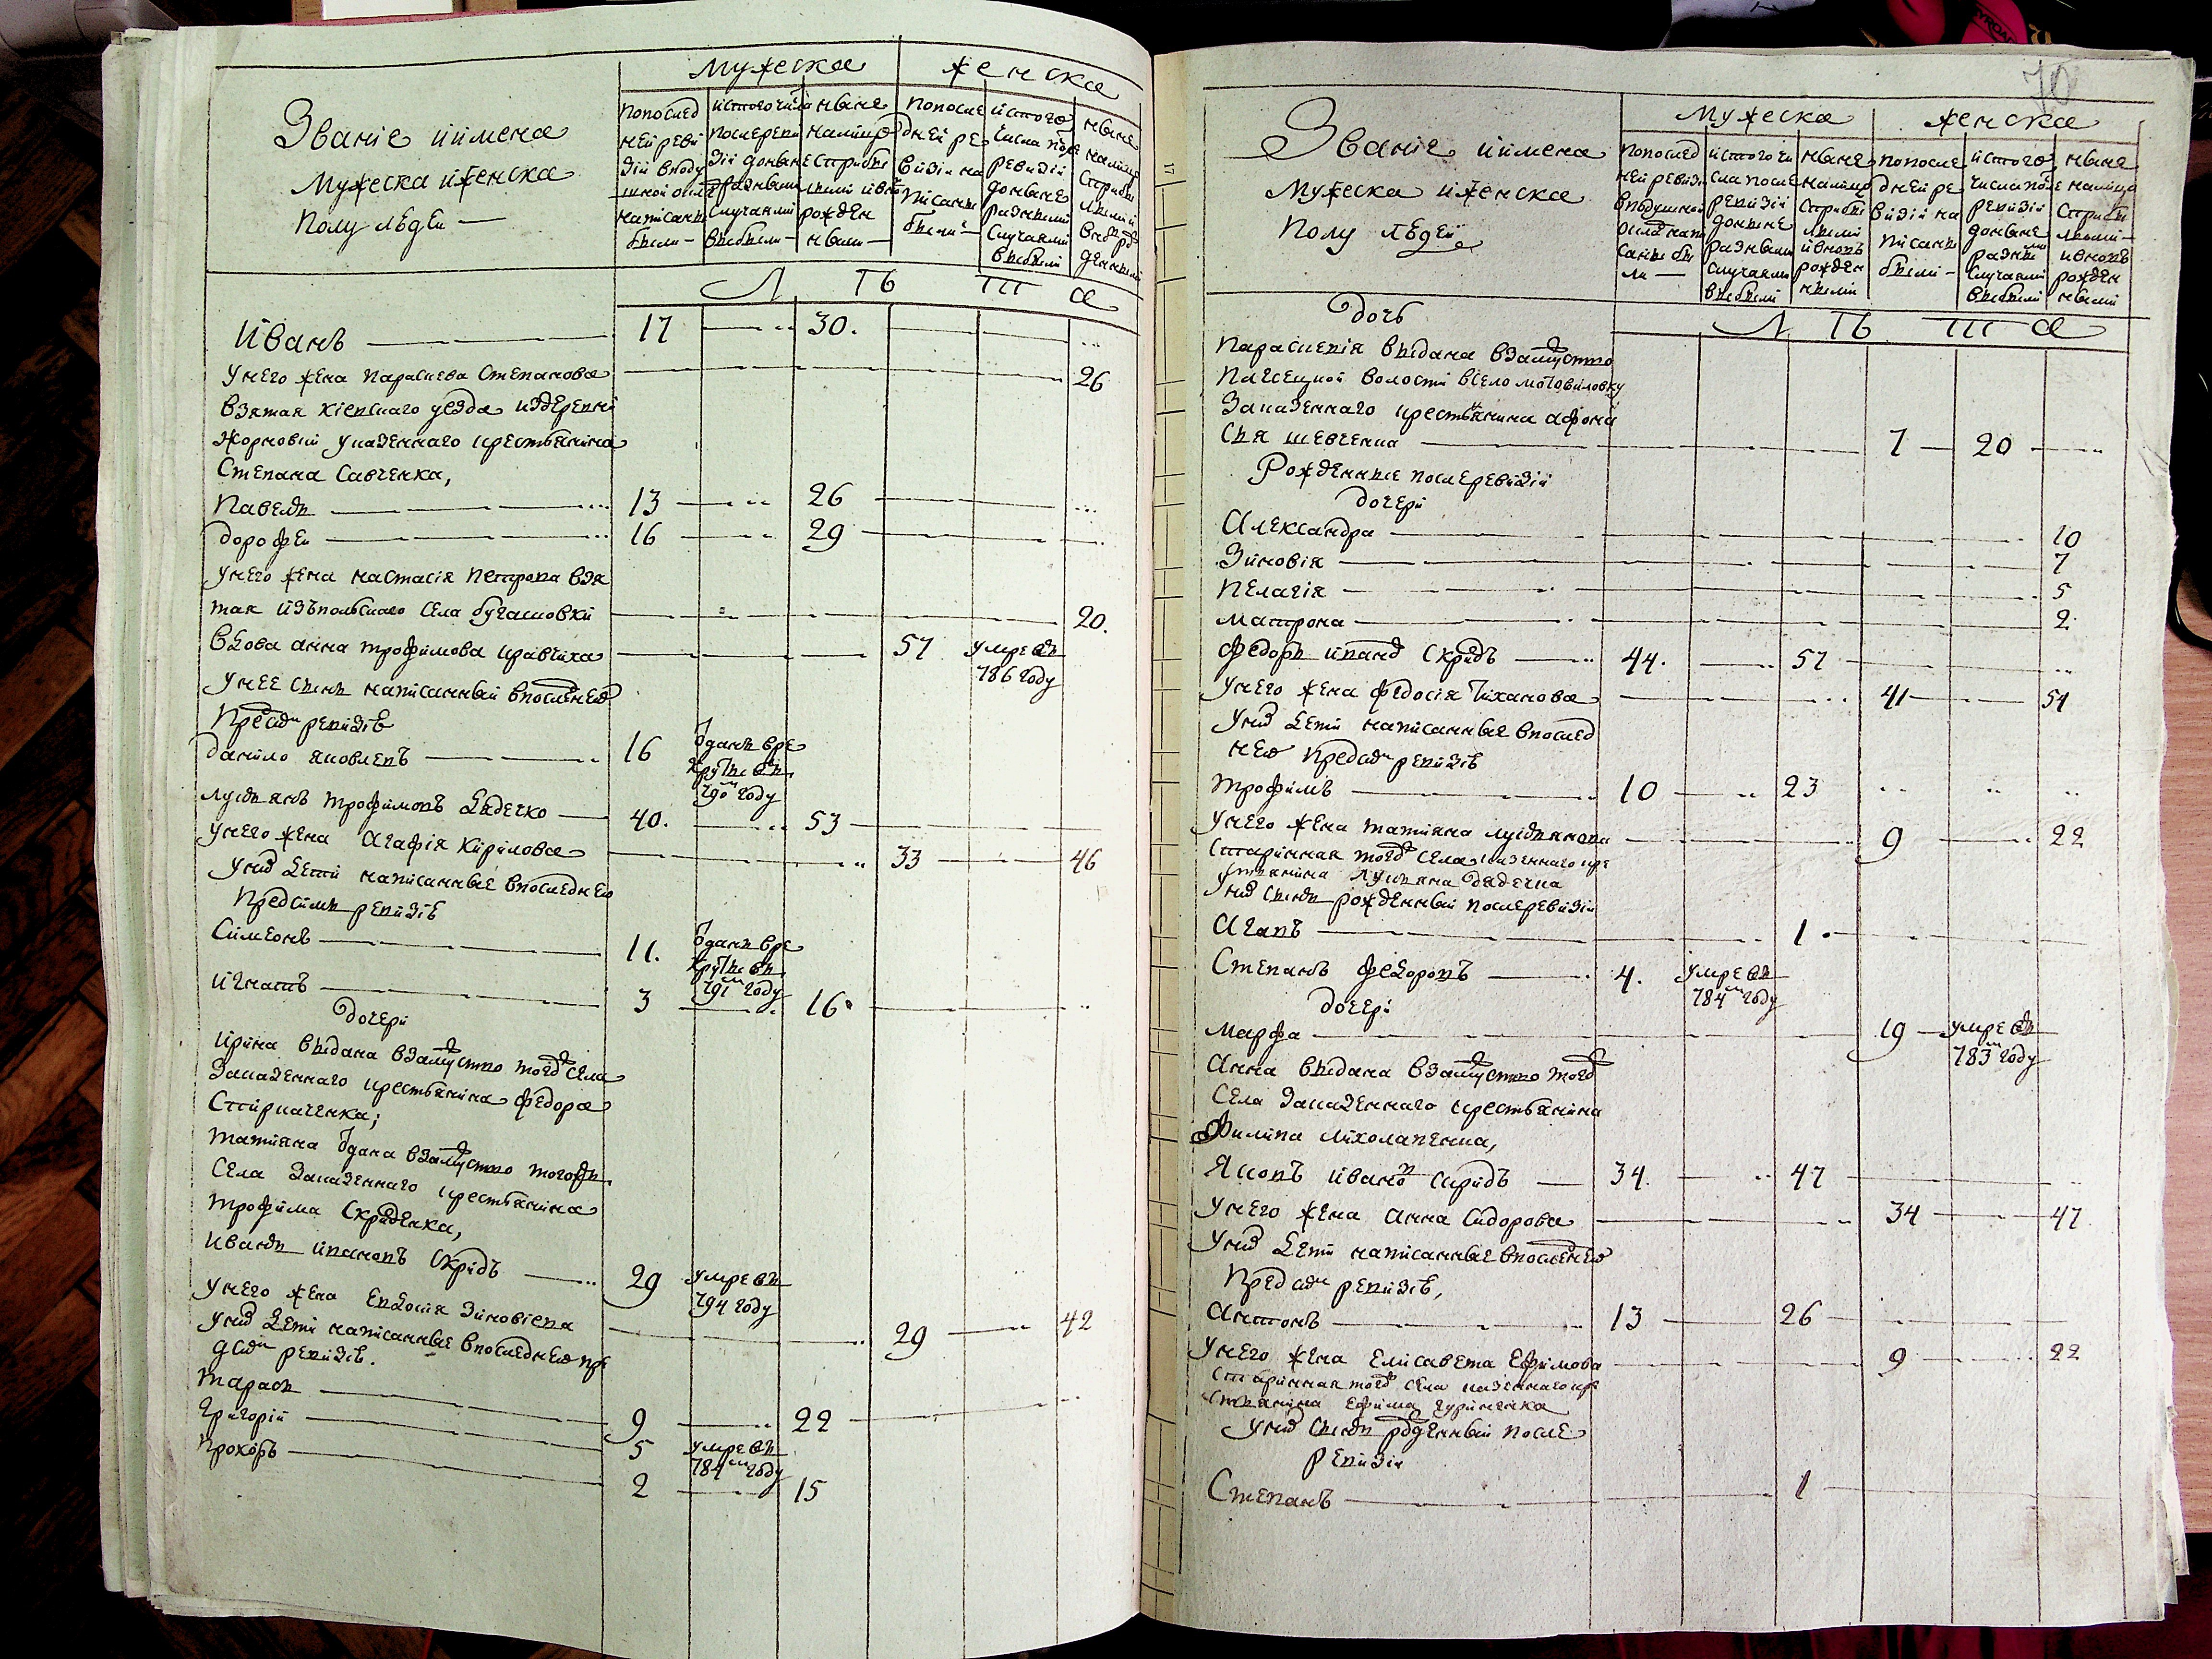 Мужеска Женска
Званіе иимена
Мужеска иженска
полу людеи
попослед
ней реви
зіи вподу
шной окладъ
написаны
были
истого числа
послереви
зіи доныне
разными
случаями
выбыли
ныне
налицо
сприбы
лыми ивновь
рожден
ными
попосле
дней ре
визіи на
писаны
были
истого
числа после
ревизіи
доныне
разными
случаями
выбыли
ныне
налицо
сприбы
лыми и
вновь ро
жденными
Л Ѣ Т а
Иванъ 17 30.
унего жена параскева Степанова 26
взятая кіевскаго уезда издеревни
Жорновки указеннаго крестьянина
Степана Савченка,
павелъ 13 26
дорофеи 16 29
унего жена настасія петрова взя
тая изъпольскаго села бугаиовки 20.
вдова анна трофимова кравчиха 57 умре въ
786 году
унее сынъ написанный впоследнеи
предъ симъ ревизіи
данило яковлевъ 16 отданъ вре
круты въ
790м году
лукьянъ трофимовъ дядечко 40. 53
унего жена Агафія Кирилова 33 46
унихъ дети написанные впоследнеи
предсимъ ревизіи
Симеонъ 11. отданъ вре
круты въ
791м году
игнатъ 3 16
дочери
ирина выдана взамужство тогожъ села
заказеннаго крестьянина федора
Стирпаченка;
татияна отдана взамужство тогожъ
села заказеннаго крестьянина
трофима Скриденка,
иванъ ивановъ Скридъ 29 умре въ
794 году
унего жена евдокія зиновіева 29 42
унихъ дети написанные впоследнеи пре
дсимъ ревизіи.
тарасъ 9 22
григорій 5 умре въ
784м году
прокопъ 2 15
70
Мужеска Женска
Званіе иимена
Мужеска иженска
полу людеи
попослед
ней ревизіи
вподушной
окладъ напи
саны бы
ли
истого чи
сла после
ревизіи
доныне
разными
случаями
выбыли
ныне
налицо
сприбы
лыми
ивновь
рожден
ными
попосле
дней ре
визіи на
писаны
были
истого
числа после
ревизіи
доныне
разными
случаями
выбыли
ныне
налицо
сприбы
лыми
ивновь
рожден
ными
дочь
Л Ѣ Т а
параскевія выдана взамужство
волости всело мотовиловку
заказеннаго крестьянина афона
сія шевченка 7 20
Рожденные послеревизіи
дочери
Александра 10
Зиновія 7
пелагія 5
матрона 2
федоръ ивановъ Скридъ 44. 57
унего жена федосія тиханова 41 54
унихъ дети написанные впослед
неи предъсимъ ревизіи
трофимъ 10 23
унего жена татияна лукьянова 9 22
старинная тогожъ села казеннаго кре
стьянина лукьяна дядечка
унихъ сынъ рожденный послеревизіи
Агапъ 1
Степанъ федоровъ 4. умре въ
784м году
дочери
марфа 19 умре въ
783м году
Анна выдана взамужство тогожъ
села заказеннаго крестьянина
филипа миколаенка,
Яковъ иванов скридъ 34. 47
унего жена анна Сидорова 34 47
унихъ дети написанные впоследнеи
предсимъ ревизіи,
антонъ 13 26
унего жена елисавета ефимова 9 22
старинная тогожъ села казеннаго кре
стьянина ефима гуринчика
унихъ сынъ рожденный после
ревизіи
Степанъ 1